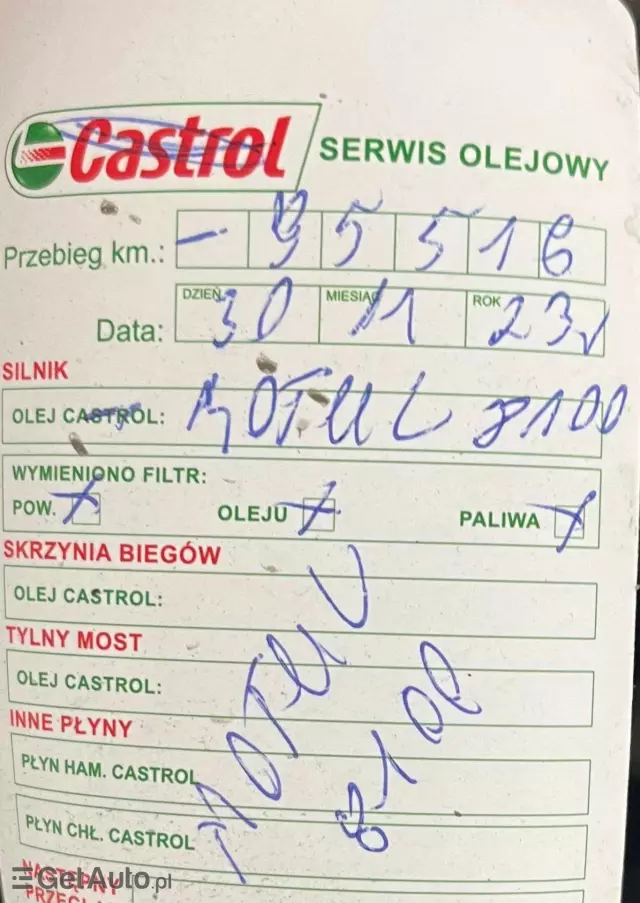 Castrol SERWIS OLEJOWY
Przebieg km.: - 95516
DZIEŃ MIESIĄC ROK
Data: 30 11 23
SILNIK
OLEJ CASTROL: MOTUL 8100
WYMIENIONO FILTR:
POW. OLEJU PALIWA
SKRZYNIA BIEGÓW
OLEJ CASTROL:
TYLNY MOST
OLEJ CASTROL:
INNE PŁYNY
PŁYN HAM. CASTROL
PŁYN CHŁ. CASTROL
MOTUL
8100
NASTĘPNY
GetAuto.pl